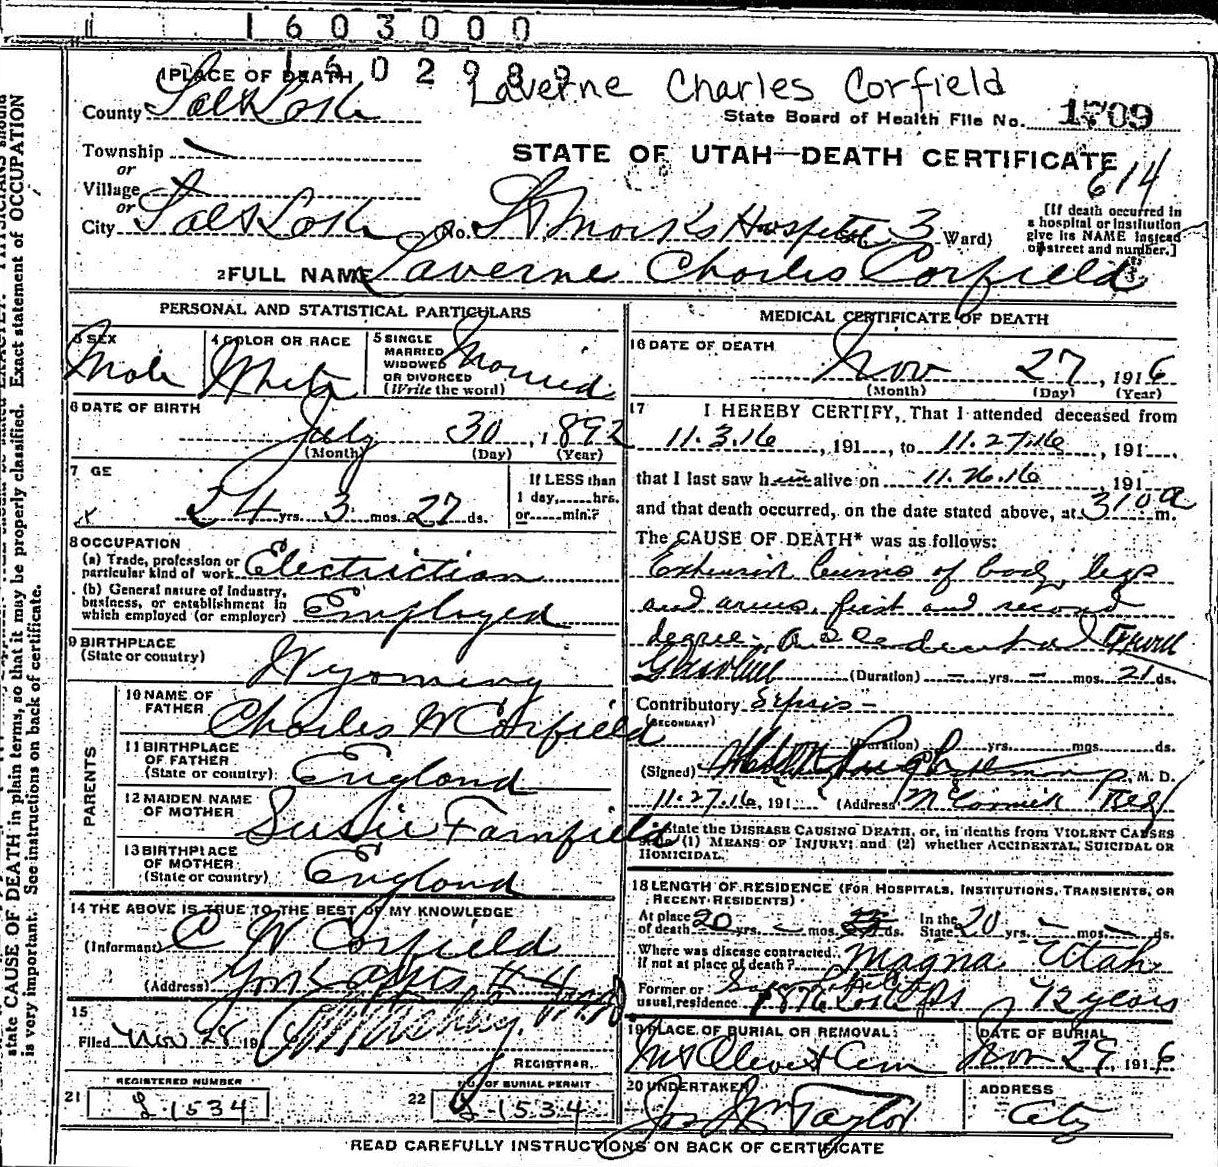 1603000
1602989
Laverne Charles Corfield
1 PLACE OF DEATH
County Salt Lake
State Board of Health File No. 1709
Township
or
Village
or
STATE OF UTAH—DEATH CERTIFICATE
614
City Salt Lake No. St Mark's Hospital 3 Ward)
[If death occurred in
a hospital or institution
give its NAME instead
of street and number.]
2 FULL NAME Laverne Charles Corfield
PERSONAL AND STATISTICAL PARTICULARS
3 SEX Male
4 COLOR OR RACE White
5 SINGLE
MARRIED
WIDOWED
OR DIVORCED
(Write the word)
Married
6 DATE OF BIRTH
July 30, 1892
(Month) (Day) (Year)
7 GE
24 yrs. 3 mos. 27 ds.
If LESS than
1 day, hrs.
or min.?
8 OCCUPATION
(a) Trade, profession or
particular kind of work Electrician
(b) General nature of industry,
business, or establishment in
which employed (or employer) Employed
9 BIRTHPLACE
(State or country) Wyoming
PARENTS
10 NAME OF
FATHER Charles W Corfield
11 BIRTHPLACE
OF FATHER
(State or country) England
12 MAIDEN NAME
OF MOTHER Susie
13 BIRTHPLACE
OF MOTHER
(State or country) England
14 THE ABOVE IS TRUE TO THE BEST OF MY KNOWLEDGE
(Informant) C W Corfield
(Address)
15
Filed Nov 28 191
REGISTRAR.
21 REGISTERED NUMBER
1534
22 NO. OF BURIAL PERMIT
1534
MEDICAL CERTIFICATE OF DEATH
16 DATE OF DEATH
Nov 27, 1916
(Month) (Day) (Year)
17 I HEREBY CERTIFY, That I attended deceased from
11.3.16, 191, to 11.27.16, 191
that I last saw him alive on 11.26.16, 191
and that death occurred, on the date stated above, at 310 a m.
The CAUSE OF DEATH* was as follows:
Extensive burns of body, legs
and arms, first and second
degree - accidental
(Duration) — yrs. — mos. 21 ds.
Contributory Sepsis -
(SECONDARY)
(Duration) yrs. mos. ds.
(Signed) M. D.
11.27.16, 191 (Address) McCornick Bldg
*State the DISEASE CAUSING DEATH, or, in deaths from VIOLENT CAUSES
state (1) MEANS OF INJURY; and (2) whether ACCIDENTAL, SUICIDAL OR
HOMICIDAL.
18 LENGTH OF RESIDENCE (FOR HOSPITALS, INSTITUTIONS, TRANSIENTS, OR
RECENT RESIDENTS)
At place
of death 20 yrs. — mos. ds. In the
State 20 yrs. — mos. — ds.
Where was disease contracted,
if not at place of death? Magna Utah
Former or
usual residence 12 years
19 PLACE OF BURIAL OR REMOVAL
Mt Olivet Cem
DATE OF BURIAL
Nov 29 1916
20 UNDERTAKER
Jos Wm Taylor
ADDRESS
City
READ CAREFULLY INSTRUCTIONS ON BACK OF CERTIFICATE
state CAUSE OF DEATH in plain terms, so that it may be properly classified. Exact statement of OCCUPATION
is very important. See instructions on back of certificate.